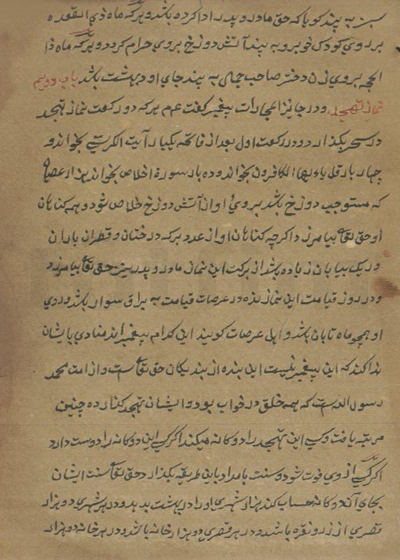 سبز به بیند گویا که حق مادر و پدر ادا کرده باشد و هر که ماه ذی القعده
بر روی کودک خوبرو به بیند آتش دوزخ بر وی حرام گردد و هر که ماه ذا
الحجه بر روی زن دختر صاحب جمالی به بیند جای او در بهشت باشد باب دویم
نماز تهجد و در جابر انجارات پیغمبر گفت عم هر که دو رکعت نماز تهجد
در سحر بگذارد و در رکعت اول بعد از فاتحه یکبار آیت الکرسی بخواند و
چهار بار قل یا ایها الکافرون بخواند و ده بار سورة اخلاص بخواند از
که مستوجب دوزخ باشد بر وی او از آتش دوزخ خلاص شود و همه گناهان
او حق تعالی بیامرزد اگرچه گناهان او از عدد برگ درختان و قطرهای باران
و ریگ بیابان زیاده باشد از برکت این نماز مادر و پدر نیز حق تعالی بیامرزد
و در روز قیامت این نماز بنده در عرصات قیامت به براق سوار باشد و روی
او همچو ماه تابان باشد و اهل عرصات گویند این کدام پیغمبر اند منادی با ایشان
ندا کند که این پیغمبر نیست این بنده از بندیکان حق تعالی است و از امت محمد
رسول الله است که همه خلق در خواب بود و ایشان تهجد گذارده چنین
مرتبه یافت و این تهجد را دوگانه میگذارد اگر کسی این دوگانه را دوست دارد
اگر کسی از وی فوت شود و سنت بامداد باین طریقه بگذارد حق تعالی سنت ایشان
بجای آن دوگانه حساب کند هزار شهری او را در بهشت بدهد و در هر شهری دو هزار
قصری از زر و نقره باشد و در هر قصری دو هزار خانه باشد و در هر خانه دو هزار